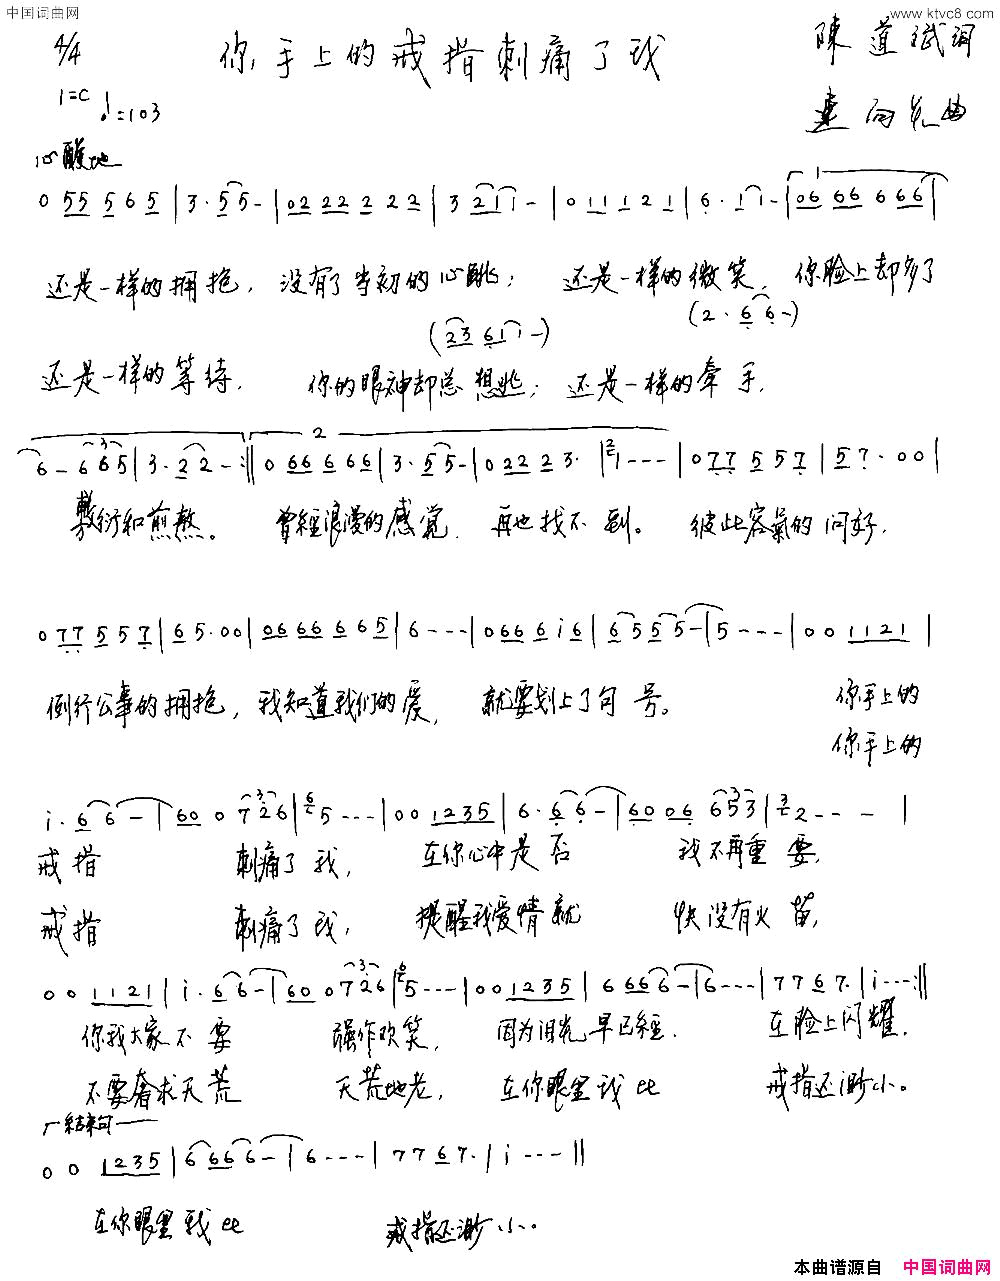 中国词曲网
www.ktvc8.com
4/4 你手上的戒指刺痛了我 陳道斌词
1=C ♩=103 曲
心酸地
0 55 5 6 5 | 3 · 55 - | 02 22 2 2 2 | 3 2 1 1 - | 0 1 1 1 2 1 | 6 · 1 1 - | 06 66 6 66 |
还是一样的拥抱，没有了当初的心跳；还是一样的微笑，你脸上却多了
(23 61 1 -) (2 · 6 6 -)
还是一样的等待，你的眼神却总想逃；还是一样的牵手，
6 - 6 6 5 | 3 · 2 2 - :|| 0 66 6 6 6 | 3 · 5 5 - | 0 22 2 3 · | 1 - - - | 0 77 5 5 7 | 5 7 · 0 0 |
敷衍和煎熬。曾經浪漫的感觉，再也找不到。彼此客氣的问好，
0 77 5 5 7 | 6 5 · 0 0 | 06 66 6 6 5 | 6 - - - | 0 66 6 i 6 | 6 5 5 5 - | 5 - - - | 0 0 1121 |
例行公事的拥抱，我知道我们的爱，就要划上了句号。你手上的
你手上的
i · 6 6 - | 60 0 7 2 6 | 5 - - - | 0 0 1235 | 6 · 6 6 - | 60 06 6 5 3 | 2 - - - |
戒指 刺痛了我，在你心中是否 我不再重要，
戒指 刺痛了我，提醒我爱情就 快没有火苗，
0 0 1121 | i · 6 6 - | 60 0 7 2 6 | 5 - - - | 0 0 1235 | 6 66 6 - | 6 - - - | 7 7 6 7 · | i - - - :||
你我大家不要 强作欢笑，因为泪光早已經 在脸上闪耀，
不要奢求天荒 天荒地老，在你眼里我 比 戒指还渺小。
结束句
0 0 1235 | 6 66 6 - | 6 - - - | 7 7 6 7 · | i - - - ||
在你眼里我 比 戒指还渺小。
本曲谱源自 中国词曲网